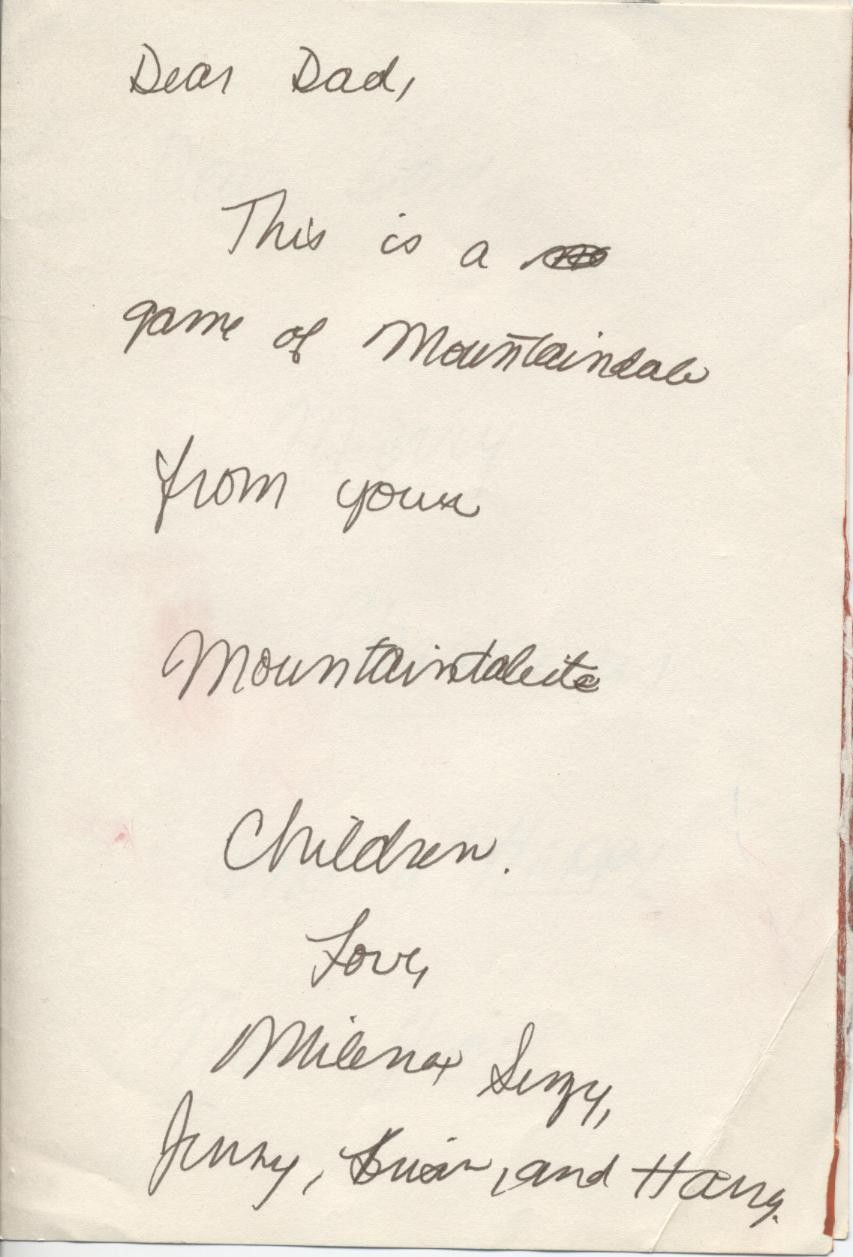 Dear Dad,
This is a
game of Mountaindale
from your
Mountaindaleite
Children.
Love,
Milena
Jenny, Brian, and Harry.